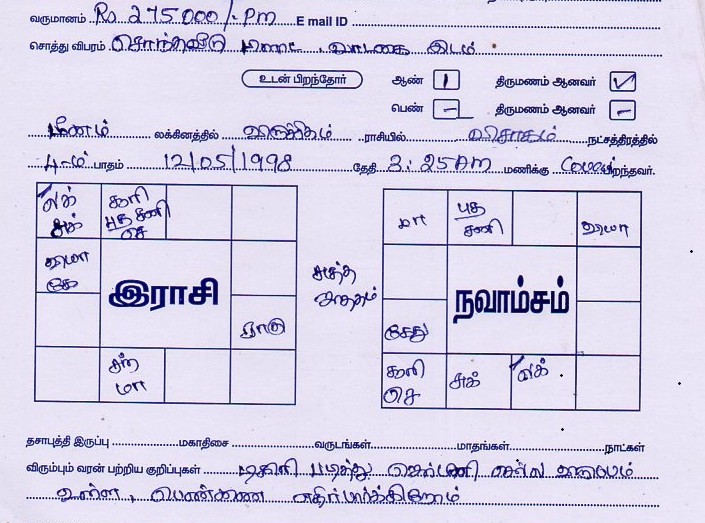 வருமானம் Rs 275000/- Pm E mail ID
சொத்து விபரம் சொந்தவீடு வாடகை இடம்
உடன் பிறந்தோர் ஆண் 1 திருமணம் ஆனவர் ✓
பெண் – திருமணம் ஆனவர் –
மீனம் லக்கினத்தில் விருச்சிகம் ராசியில் விசாகம் நட்சத்திரத்தில்
4-ம் பாதம் 12/05/1998 தேதி 3:25AM மணிக்கு பிறந்தவர்.
சுக் புத சனி மா புத சனி
கே இராசி சுத்த ஜாதகம் நவாம்சம்
ராகு கேது
மா செ சுக்
தசாபுத்தி இருப்பு மகாதிசை வருடங்கள் மாதங்கள் நாட்கள்
விரும்பும் வரன் பற்றிய குறிப்புகள் டிகிரி படித்து ஜெர்மனி செல்ல விருப்பம்
உள்ள, பெண்ணை எதிர்பார்க்கிறோம்